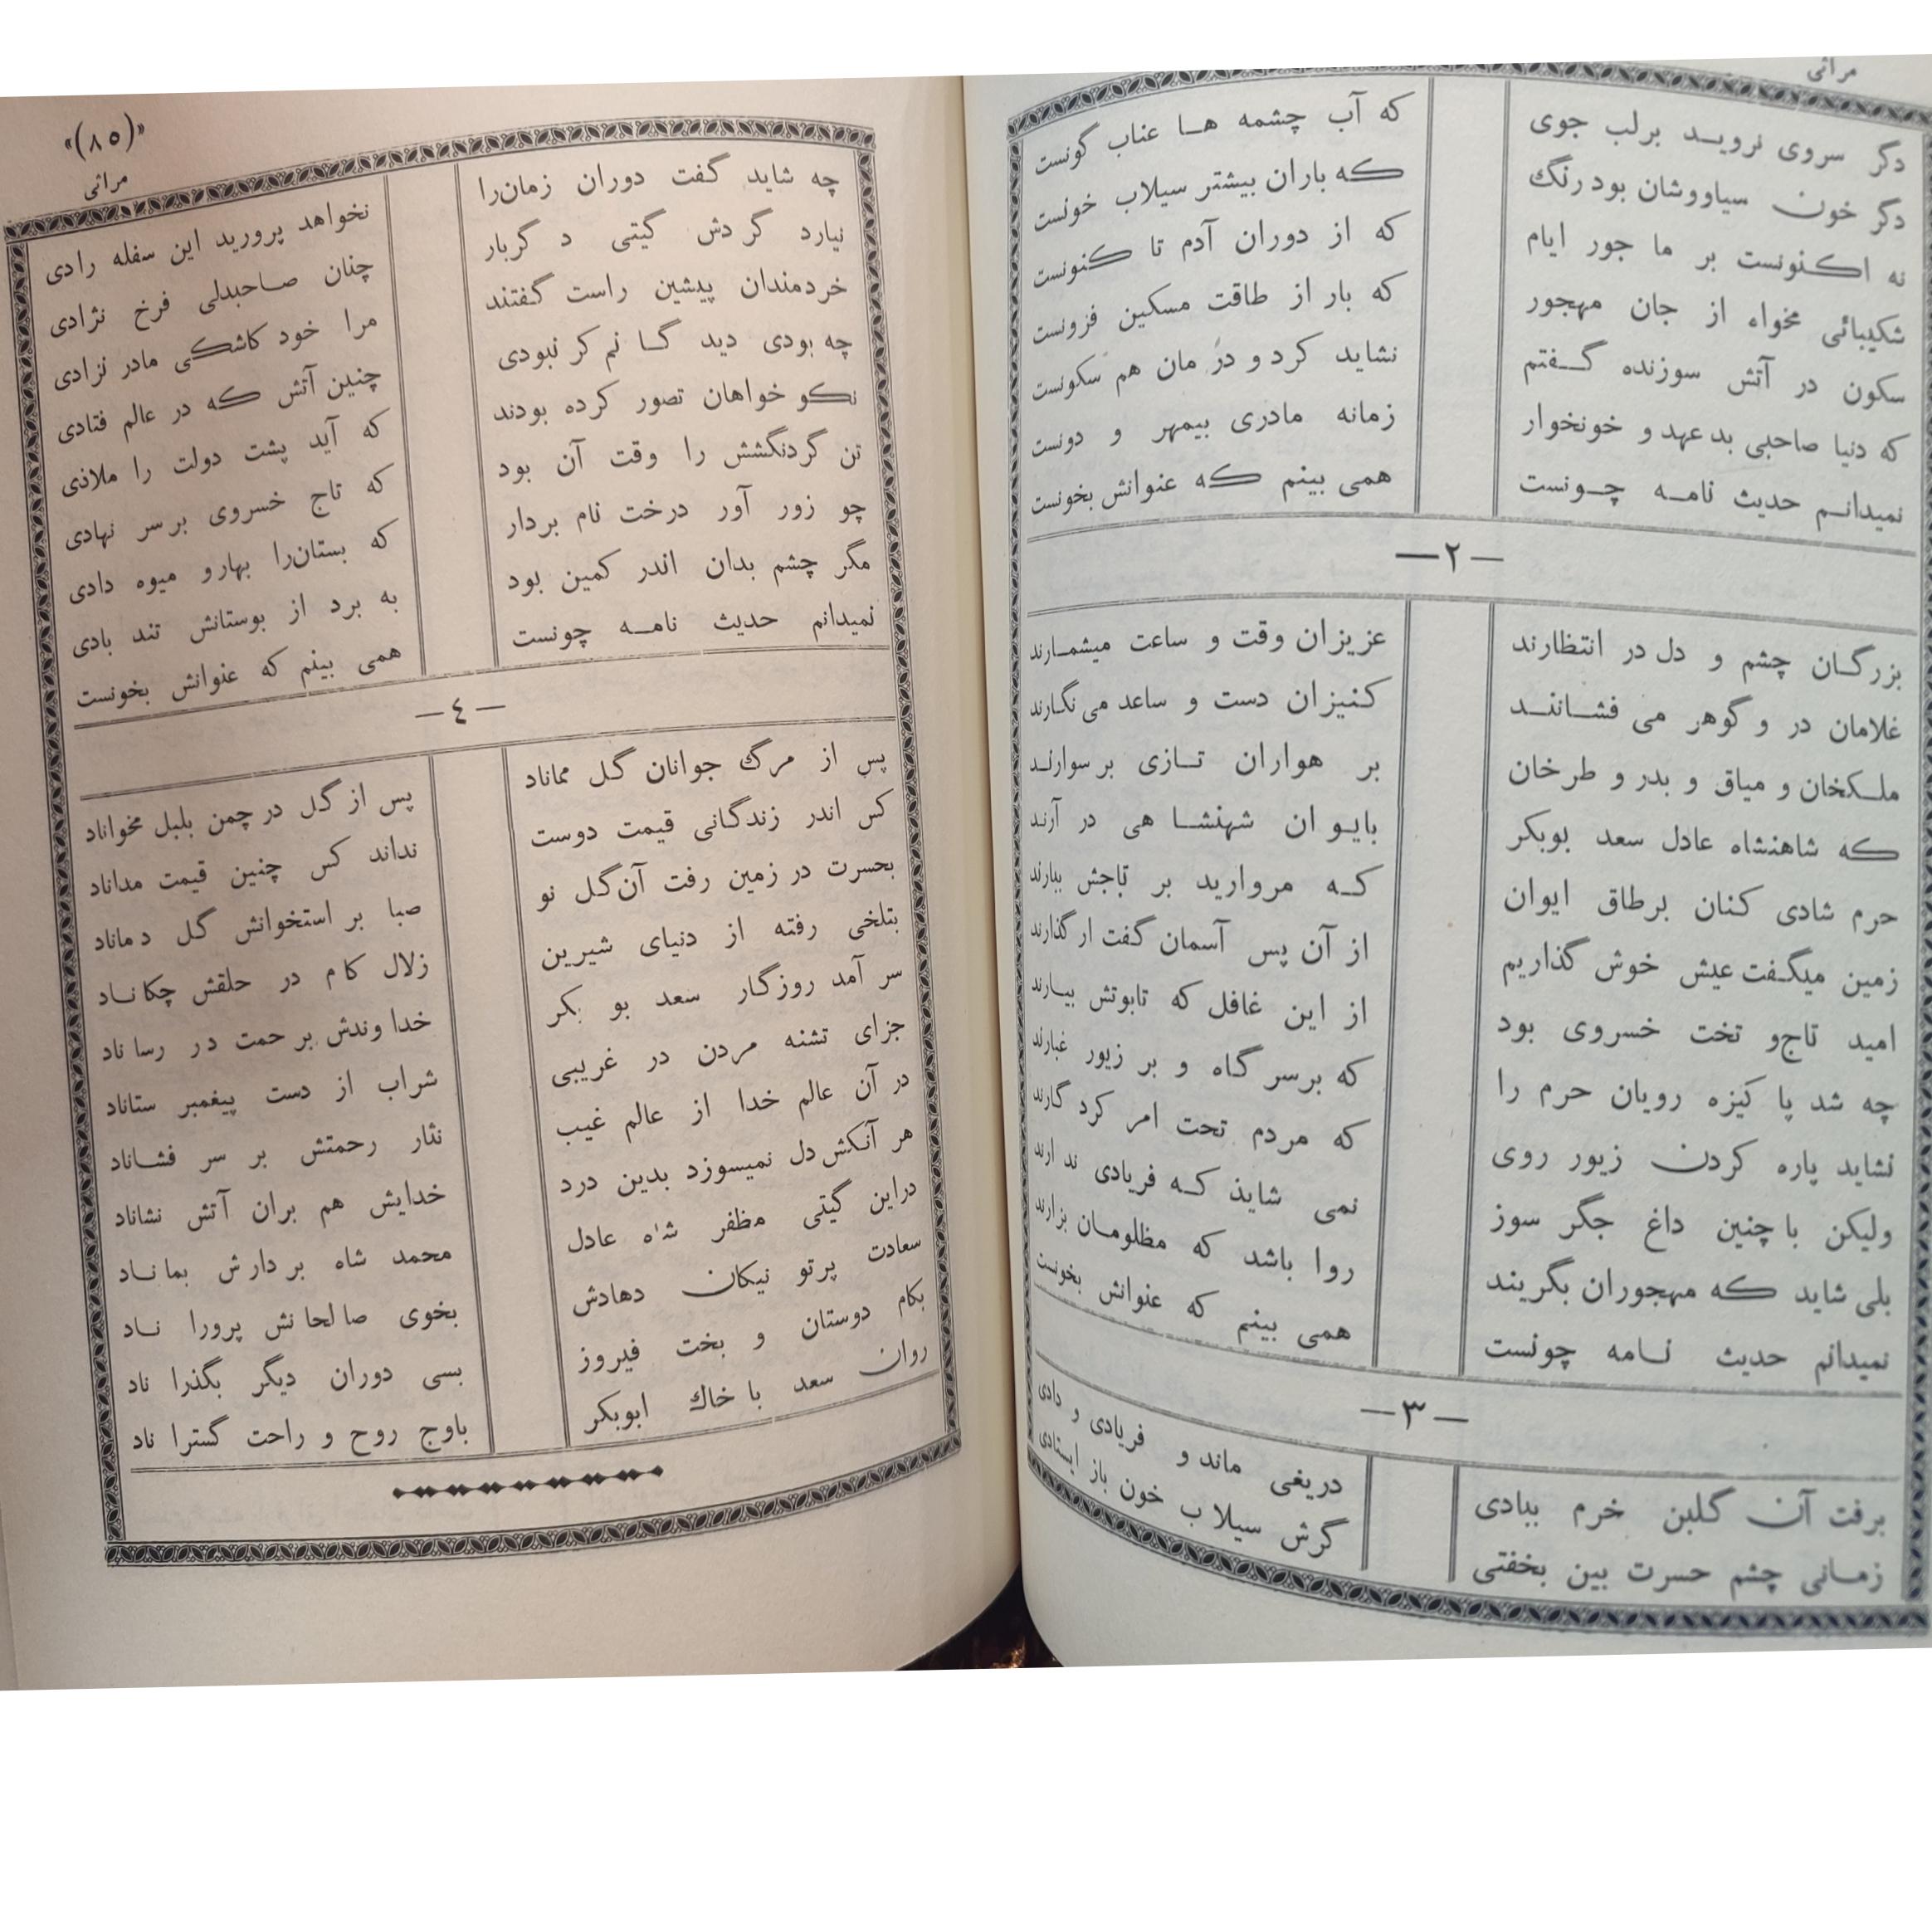 مراثی
دگر سروی نروید برلب جوی که آب چشمه ها عناب گونست
دگر خون سیاووشان بود رنگ که باران بیشتر سیلاب خونست
نه اکنونست بر ما جور ایام که از دوران آدم تا کنونست
شکیبائی مخواه از جان مهجور که بار از طاقت مسکین فزونست
سکون در آتش سوزنده گفتم نشاید کرد و در مان هم سکونست
که دنیا صاحبی بدعهد و خونخوار زمانه مادری بیمهر و دونست
نمیدانم حدیث نامه چونست همی بینم که عنوانش بخونست
—۲—
بزرگان چشم و دل در انتظارند عزیزان وقت و ساعت میشمارند
غلامان در و گوهر می فشانند کنیزان دست و ساعد می نگارند
ملکخان و میاق و بدر و طرخان بر هواران تازی بر سوارند
که شاهنشاه عادل سعد بوبکر بایوان شهنشاهی در آرند
حرم شادی کنان برطاق ایوان که مروارید بر تاجش ببارند
زمین میگفت عیش خوش گذاریم از آن پس آسمان گفت ار گذارند
امید تاج و تخت خسروی بود از این غافل که تابوتش بیارند
چه شد پا کیزه رویان حرم را که بر سر گاه و بر زیور غبارند
نشاید پاره کردن زیور روی که مردم تحت امر کرد گارند
ولیکن با چنین داغ جگر سوز نمی شاید که فریادی ندارند
بلی شاید که مهجوران بگریند روا باشد که مظلومان بزارند
نمیدانم حدیث نامه چونست همی بینم که عنوانش بخونست
—۳—
برفت آن گلبن خرم ببادی دریغی ماند و فریادی و دادی
زمانی چشم حسرت بین بخفتی گرش سیلاب خون باز ایستادی
«(۸۵)»
مراثی
چه شاید گفت دوران زمان را نخواهد پرورید این سفله رادی
نیارد گردش گیتی د گربار چنان صاحبدلی فرخ نژادی
خردمندان پیشین راست گفتند مرا خود کاشکی مادر نزادی
چه بودی دید گا نم کر نبودی چنین آتش که در عالم فتادی
نکو خواهان تصور کرده بودند که آید پشت دولت را ملاذی
تن گردنگشش را وقت آن بود که تاج خسروی بر سر نهادی
چو زور آور درخت نام بردار که بستان را بهارو میوه دادی
مگر چشم بدان اندر کمین بود به برد از بوستانش تند بادی
نمیدانم حدیث نامه چونست همی بینم که عنوانش بخونست
—٤—
پس از مرگ جوانان گل مماناد پس از گل در چمن بلبل مخواناد
کس اندر زندگانی قیمت دوست نداند کس چنین قیمت مداناد
بحسرت در زمین رفت آن گل نو صبا بر استخوانش گل دماناد
بتلخی رفته از دنیای شیرین زلال کام در حلقش چکاناد
سر آمد روزگار سعد بو بکر خداوندش بر حمت در رساناد
جزای تشنه مردن در غریبی شراب از دست پیغمبر ستاناد
در آن عالم خدا از عالم غیب نثار رحمتش بر سر فشاناد
هر آنکش دل نمیسوزد بدین درد خدایش هم بران آتش نشاناد
دراین گیتی مظفر شاه عادل محمد شاه بر دارش بماناد
سعادت پرتو نیکان دهادش بخوی صالحانش پروراناد
بکام دوستان و بخت فیروز بسی دوران دیگر بگذراناد
روان سعد با خاك ابوبکر باوج روح و راحت گستراناد